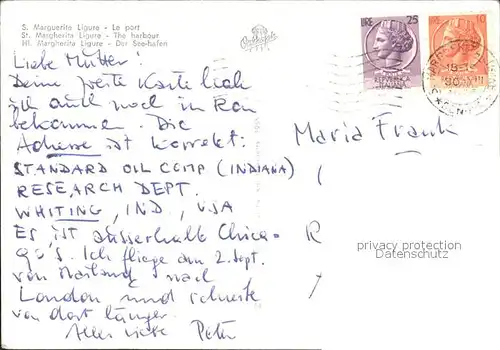 S. Marguerita Ligure - Le port
St. Margherita Ligure - The harbour
Hl. Margherita Ligure - Der See-hafen
LIRE 25
LIRE 10
Liebe Mutter!
Deine zweite Karte ließ
sie auch noch in Rom
bekommen. Die
Adresse ist korrekt:
STANDARD OIL COMP (INDIANA)
RESEARCH DEPT.
WHITING, IND, USA
ES ist ausserhalb Chica-
go's. Ich fliege am 2. Sept.
von Mailand nach
London und schreibe
von dort länger.
Alles Liebe Peter
Maria Frank
R
privacy protection
Datenschutz